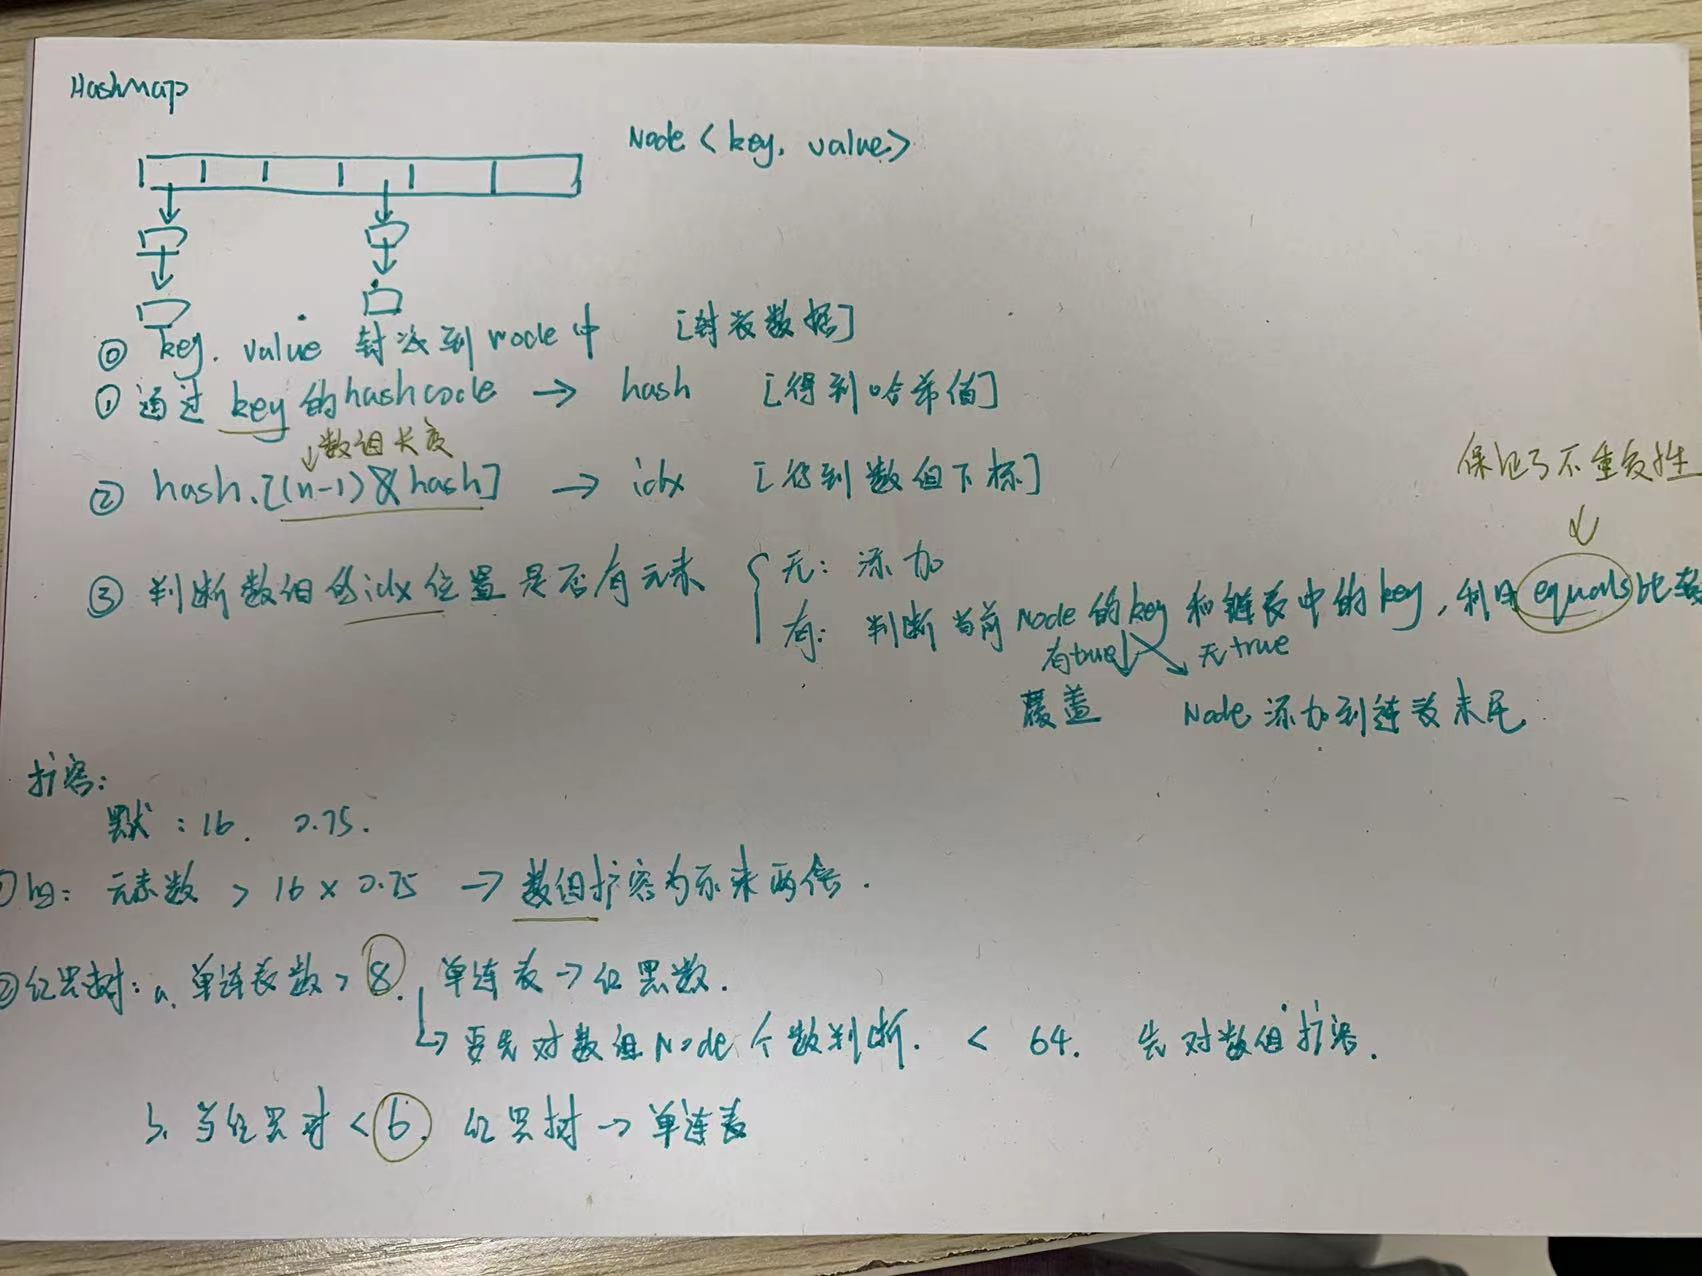 HashMap
Node <key, value>
⓪ key, value 封装到node中 [封装数据]
① 通过 key的hashcode → hash [得到哈希值]
↓数组长度
② hash,[(n-1)&hash] → idx [得到数组下标]
保证了不重复性
③ 判断数组的idx位置是否有元素
无: 添加
有: 判断当前Node的key和链表中的key, 利用equals比较
有true 无true
覆盖 Node添加到链表末尾
扩容:
默: 16. 0.75.
元素数 > 16 × 0.75 → 数组扩容为原来两倍.
②红黑树: a. 单连表数 > 8. 单连表→红黑数.
要先对数组Node个数判断. < 64. 先对数组扩容.
b. 当红黑树 < 6. 红黑树 → 单连表